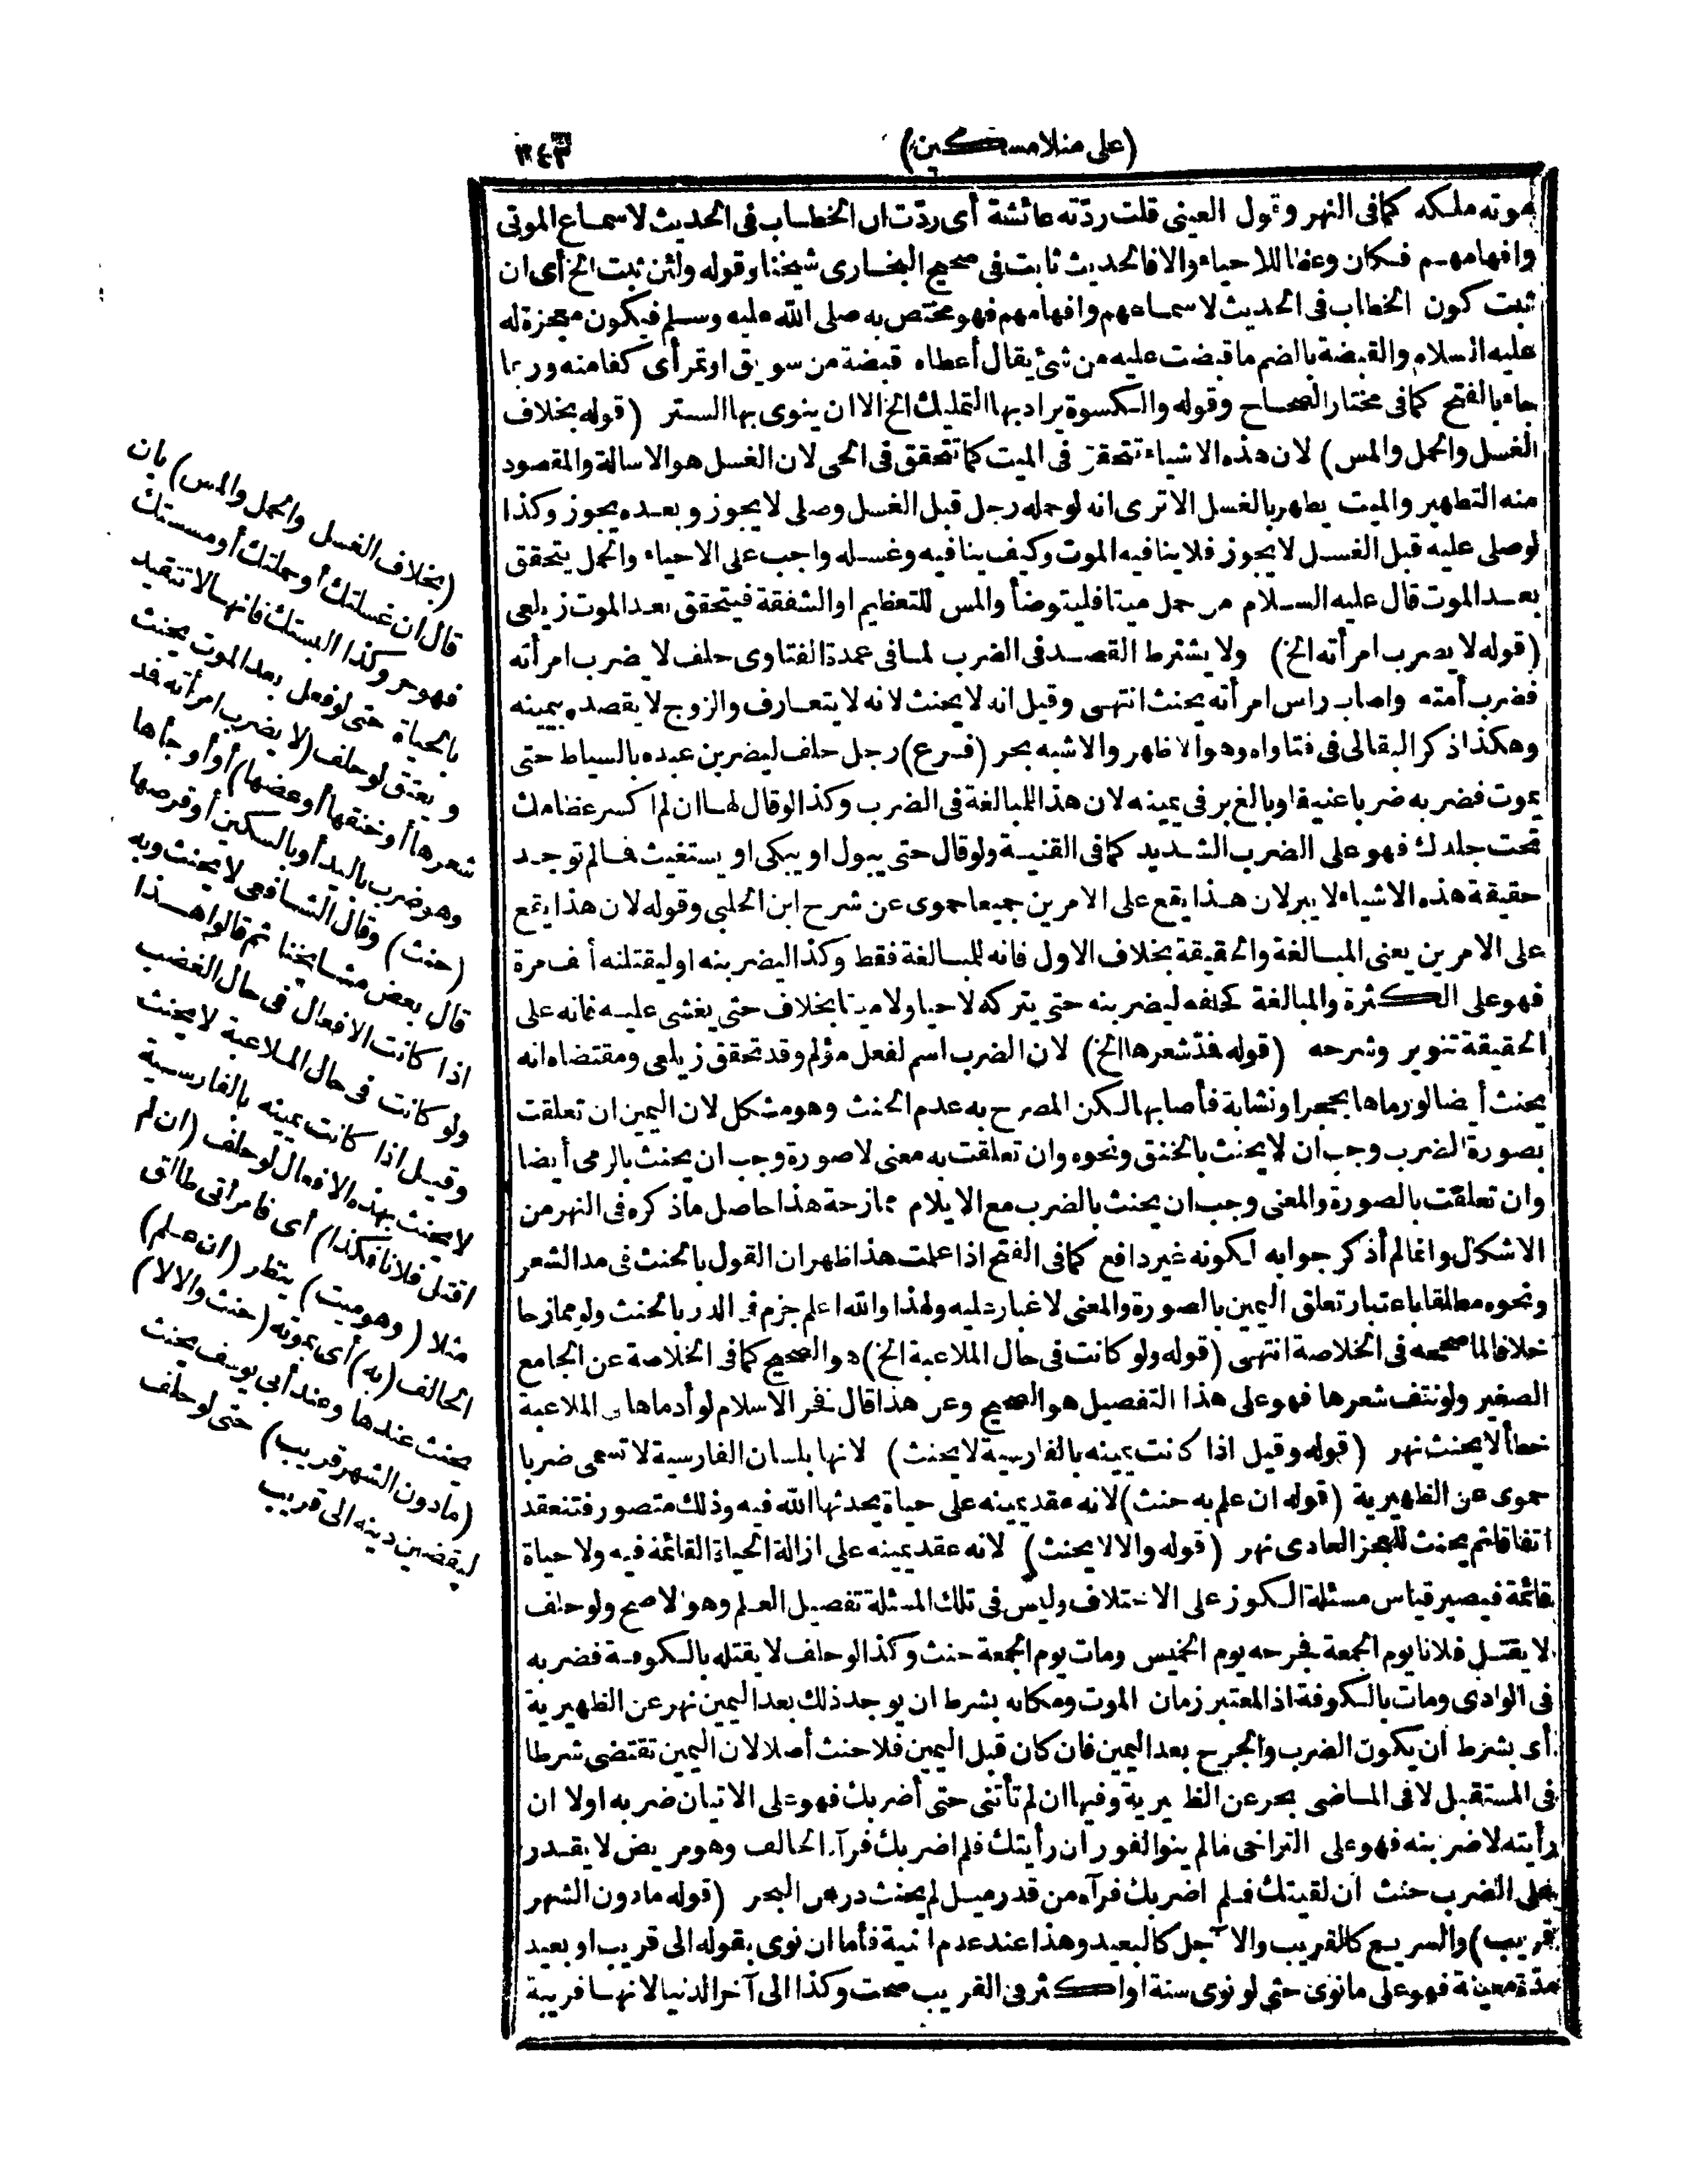 (على منلا مسكين)
٣٤٣
بموته ملكه كما فى النهر وقول العينى قلت ردّته عائشة أى ردّت ان الخطاب فى الحديث لاسماع الموتى
وافهامهم فكان وعظا للاحياء والا فالحديث ثابت فى صحيح البخارى شيخنا وقوله ولئن ثبت الخ أى ان
ثبت كون الخطاب فى الحديث لاسماعهم وافهامهم فهو مختص به صلى الله عليه وسلم فيكون معجزة له
عليه السلام والقبضة بالضم ما قبضت عليه من شئ يقال أعطاه قبضة من سويق اوتمر أى كفا منه وربما
جاء بالفتح كما فى مختار الصحاح وقوله والكسوة يراد بها التمليك الخ الا ان ينوى بها الستر (قوله بخلاف
الغسل والحمل والمس) لان هذه الاشياء تتحقق فى الميت كما تتحقق فى الحى لان الغسل هو الاسالة والمقصود
منه التطهير والميت يطهر بالغسل الا ترى انه لو حمله رجل قبل الغسل وصلى لا يجوز وبعده يجوز وكذا
لو صلى عليه قبل الغسل لا يجوز فلا ينافيه الموت وكيف ينافيه وغسله واجب على الاحياء والحمل يتحقق
بعد الموت قال عليه السلام من حمل ميتا فليتوضأ والمس للتعظيم او الشفقة فيتحقق بعد الموت زيلعى
(قوله لا يضرب امرأته الخ) ولا يشترط القصد فى الضرب لما فى عمدة الفتاوى حلف لا يضرب امرأته
فضرب أمته واصاب راس امرأته يحنث انتهى وقيل انه لا يحنث لانه لا يتعارف والزوج لا يقصده بيمينه
وهكذا ذكر البقالى فى فتاواه وهو الاظهر والاشبه بحر (فرع) رجل حلف ليضربن عبده بالسياط حتى
يموت فضربه ضربا عنيفا وبالغ بر فى يمينه لان هذا للمبالغة فى الضرب وكذا لو قال لها ان لم اكسر عظامك
تحت جلدك فهو على الضرب الشديد كما فى القنية ولو قال حتى يبول او يبكى او يستغيث فما لم توجد
حقيقة هذه الاشياء لا يبر لان هذا يقع على الامرين جميعا حموى عن شرح ابن الحلبي وقوله لان هذا يقع
على الامرين يعنى المبالغة والحقيقة بخلاف الاول فانه للمبالغة فقط وكذا ليضربنه او ليقتلنه ألف مرة
فهو على الكثرة والمبالغة كحلفه ليضربنه حتى يتركه لا حيا ولا ميتا بخلاف حتى يغشى عليه فانه على
الحقيقة تنوير وشرحه (قوله فمدّ شعرها الخ) لان الضرب اسم لفعل مؤلم وقد تحقق زيلعى ومقتضاه انه
يحنث أيضا لو رماها بحجر او نشابة فأصابها لكن المصرح به عدم الحنث وهو مشكل لان اليمين ان تعلقت
بصورة الضرب وجب ان لا يحنث بالخنق ونحوه وان تعلقت به معنى لا صورة وجب ان يحنث بالرمى أيضا
وان تعلقت بالصورة والمعنى وجب ان يحنث بالضرب مع الايلام ممازحة هذا حاصل ما ذكره فى النهر من
الاشكال وانما لم أذكر جوابه لكونه غير دافع كما فى الفتح اذا علمت هذا ظهر ان القول بالحنث فى مد الشعر
ونحوه مطلقا باعتبار تعلق اليمين بالصورة والمعنى لا غبار عليه ولهذا والله اعلم جزم فى الدر بالحنث ولو ممازحا
خلافا لما صححه فى الخلاصة انتهى (قوله ولو كانت فى حال الملاعبة الخ) هو الصحيح كما فى الخلاصة عن الجامع
الصغير ولو نتف شعرها فهو على هذا التفصيل هو الصحيح وعن هذا قال فخر الاسلام لو أدماها فى الملاعبة
خطأ لا يحنث نهر (قوله وقيل اذا كانت يمينه بالفارسية لا يحنث) لانها بلسان الفارسية لا تسمى ضربا
حموى عن الظهيرية (قوله ان علم به حنث) لانه عقد يمينه على حياة يحدثها الله فيه وذلك متصور فتنعقد
اتفاقا ثم يحنث للعجز العادى نهر (قوله والا لا يحنث) لانه عقد يمينه على ازالة الحياة القائمة فيه ولا حياة
قائمة فيصير قياس مسئلة الكوز على الاختلاف وليس فى تلك المسئلة تفصيل العلم وهو الاصح ولو حلف
لا يقتل فلانا يوم الجمعة فجرحه يوم الخميس ومات يوم الجمعة حنث وكذا لو حلف لا يقتله بالكوفة فضربه
فى الوادى ومات بالكوفة اذ المعتبر زمان الموت ومكانه بشرط ان يوجد ذلك بعد اليمين نهر عن الظهيرية
أى بشرط أن يكون الضرب والجرح بعد اليمين فان كان قبل اليمين فلا حنث أصلا لان اليمين تقتضى شرطا
فى المستقبل لا فى الماضى بحر عن الظهيرية وفيها ان لم تأتنى حتى أضربك فهو على الاتيان ضربه اولا ان
رأيته لاضربنه فهو على التراخى ما لم ينو الفور ان رأيتك فلم اضربك فرآه الحالف وهو مريض لا يقدر
على الضرب حنث ان لقيتك فلم اضربك فرآه من قدر ميل لم يحنث در عن البحر (قوله مادون الشهر
قريب) والسريع كالقريب والآجل كالبعيد وهذا عند عدم النية فأما ان نوى بقوله الى قريب او بعيد
مدّة معينة فهو على ما نوى حتى لو نوى سنة او اكثر فى القريب صحت وكذا الى آخر الدنيا لانها قريبة
(بخلاف الغسل والحمل والمس) بان
قال ان غسلتك أو حملتك أو مسستك
فهو حر وكذا البستك فانها لا تتقيد
بالحياة حتى لو فعل بعد الموت يحنث
ويعتق لو حلف (لا يضرب امرأته فمد
شعرها أو خنقها أو عضها) أو أوجأها
وهو ضرب باليد أو بالسكين أو قرصها
(حنث) وقال الشافعى لا يحنث وبه
قال بعض مشايخنا ثم قالوا هذا
اذا كانت الافعال فى حال الغضب
ولو كانت فى حال الملاعبة لا يحنث
وقيل اذا كانت يمينه بالفارسية
لا يحنث بهذه الافعال لو حلف (ان لم
اقتل فلانا فكذا) أى فامرأتى طالق
مثلا (وهو ميت) ينظر (ان علم)
الحالف (به) أى بموته (حنث والا لا)
يحنث عندها وعند أبى يوسف يحنث
(مادون الشهر قريب) حتى لو حلف
ليقضين دينه الى قريب